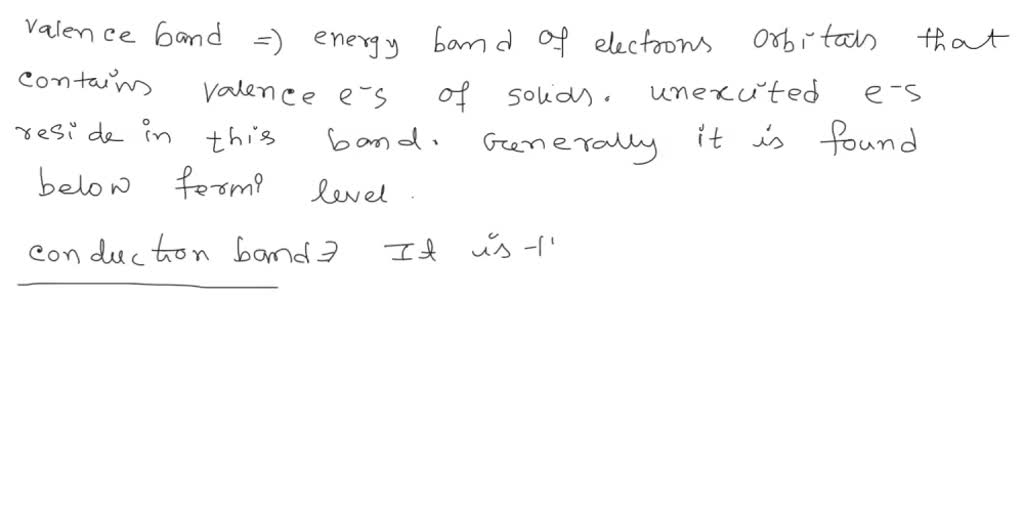 valence band => energy band of electrons orbitals that
contains valence e-s of solids. unexcited e-s
reside in this band. Generally it is found
below fermi level.
conduction band => It is